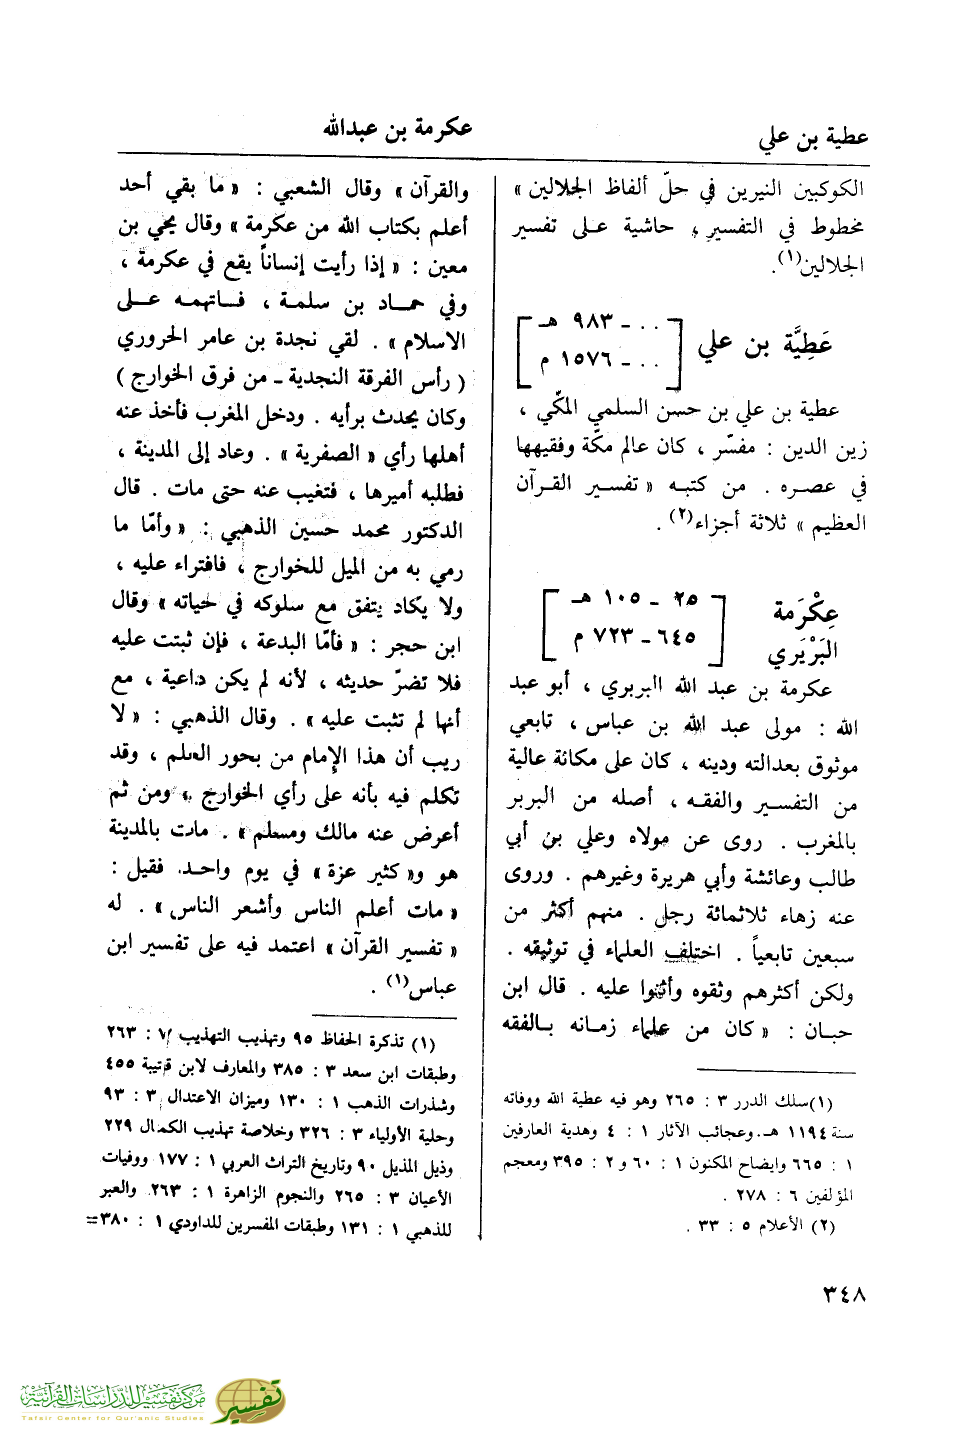 عطية بن علي
عكرمة بن عبدالله
الكوكبين النيرين في حلّ ألفاظ الجلالين »
مخطوط في التفسير ، حاشية على تفسير
الجلالين(١).
عَطِيَّة بن علي
.. ـ ٩٨٣ هـ
.. ـ ١٥٧٦ م
عطية بن علي بن حسن السلمي المكّي ،
زين الدين : مفسّر ، كان عالم مكّة وفقيهها
في عصره . من كتبه « تفسير القرآن
العظيم » ثلاثة أجزاء(٢) .
عِكْرَمة
البَرْبَري
٢٥ ـ ١٠٥ هـ
٦٤٥ ـ ٧٢٣ م
عكرمة بن عبد الله البربري ، أبو عبد
الله : مولى عبد الله بن عباس ، تابعي
موثوق بعدالته ودينه ، كان على مكانة عالية
من التفسير والفقه ، أصله من البربر
بالمغرب . روى عن مولاه وعلي بن أبي
طالب وعائشة وأبي هريرة وغيرهم . وروى
عنه زهاء ثلاثمائة رجل . منهم أكثر من
سبعين تابعياً . اختلف العلماء في توثيقه .
ولكن أكثرهم وثقوه وأثنوا عليه . قال ابن
حبان : « كان من علماء زمانه بالفقه
(١)سلك الدرر ٣ : ٢٦٥ وهو فيه عطية الله ووفاته
سنة ١١٩٤ هـ.وعجائب الآثار ١ : ٤ وهدية العارفين
١ : ٦٦٥ وايضاح المكنون ١ : ٦٠ و ٢ : ٣٩٥ ومعجم
المؤلفين ٦ : ٢٧٨ .
(٢) الأعلام ٥ : ٣٣ .
والقرآن» وقال الشعبي : « ما بقي أحد
أعلم بكتاب الله من عكرمة » وقال يحيى بن
معين : « إذا رأيت إنساناً يقع في عكرمة ،
وفي حماد بن سلمة ، فاتهمه على
الاسلام » . لقي نجدة بن عامر الحروري
( رأس الفرقة النجدية ـ من فرق الخوارج )
وكان يحدث برأيه . ودخل المغرب فأخذ عنه
أهلها رأي « الصفرية » . وعاد إلى المدينة ،
فطلبه أميرها ، فتغيب عنه حتى مات . قال
الدكتور محمد حسين الذهبي : « وأمّا ما
رمي به من الميل للخوارج ، فافتراء عليه ،
ولا يكاد يتفق مع سلوكه في حياته » وقال
ابن حجر : « فأمّا البدعة ، فإن ثبتت عليه
فلا تضرّ حديثه ، لأنه لم يكن داعية ، مع
أنها لم تثبت عليه » . وقال الذهبي : « لا
ريب أن هذا الإمام من بحور العلم ، وقد
تكلم فيه بأنه على رأي الخوارج ، ومن ثم
أعرض عنه مالك ومسلم » . مات بالمدينة
هو و« كثير عزة » في يوم واحد. فقيل :
« مات أعلم الناس وأشعر الناس » . له
« تفسير القرآن » اعتمد فيه على تفسير ابن
عباس(١) .
(١) تذكرة الحفاظ ٩٥ وتهذيب التهذيب ٧ : ٢٦٣
وطبقات ابن سعد ٣ : ٣٨٥ والمعارف لابن قتيبة ٤٥٥
وشذرات الذهب ١ : ١٣٠ وميزان الاعتدال ٣ : ٩٣
وحلية الأولياء ٣ : ٣٢٦ وخلاصة تهذيب الكمال ٢٢٩
وذيل المذيل ٩٠ وتاريخ التراث العربي ١ : ١٧٧ ووفيات
الأعيان ٣ : ٢٦٥ والنجوم الزاهرة ١ : ٢٦٣ والعبر
للذهبي ١ : ١٣١ وطبقات المفسرين للداودي ١ : ٣٨٠=
٣٤٨
مركز تفسير للدراسات القرآنية
Tafsir Center for Qur'anic Studies
تفسير